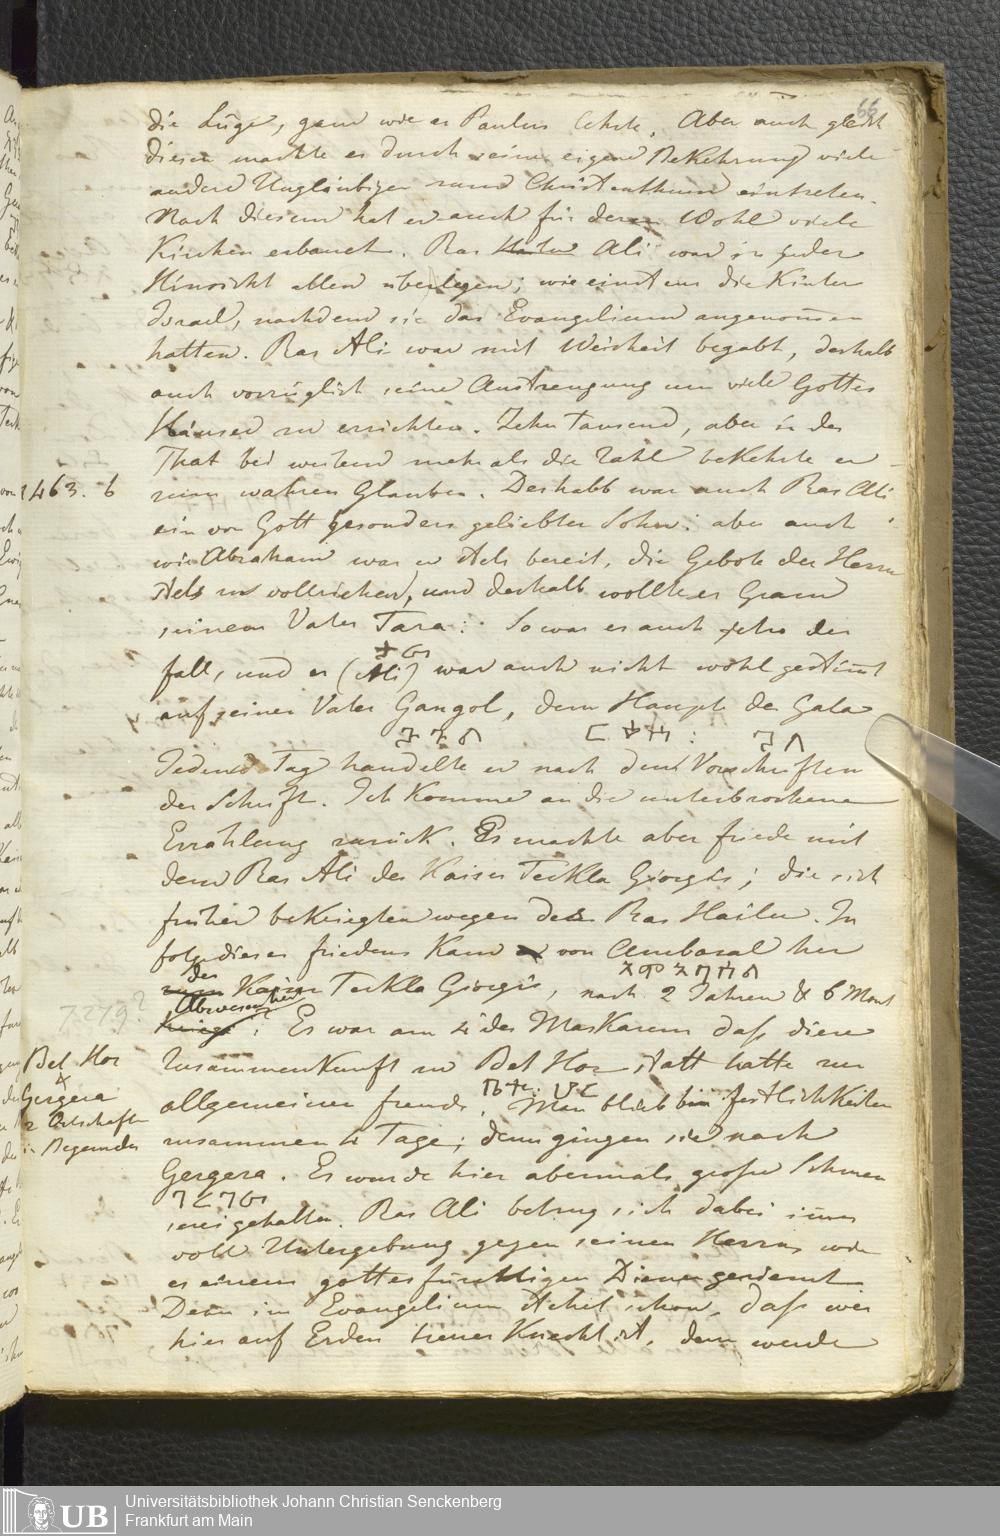 66
die Lüge, ganz wie es Paulus lehrte. Aber auch gleich
diesem machte er durch seine eigene Bekehrung viele
andere Ungläubigen zum Christenthum eintreten.
Nach diesem hat er auch für deren Wohl viele
Kirchen erbauet. Ras Ali war in jeder
Hinsicht allen überlegen; wie einstens die Kinter
Israel, nachdem sie das Evangelium angenom̄en
hatten. Ras Ali war mit Weisheit begabt, deshalb
auch vorzüglich seine Anstrengung um viele Gottes
Häuser zu errichten. Zehn Tausend, aber in der
That bei weitem mehr als die Zahl bekehrte er
463. b
zum wahren Glauben. Deshalb war auch Ras Ali
ein von Gott besonders geliebter Sohn: aber auch
wie Abraham war er stets bereit, die Gebote des Herrn
stets zu vollziehen, und deshalb wollte er Gram
seinem Vater Tara: So war es auch der
fall, und er (Ali) war auch nicht wohl gestim̄t
auf seinen Vater Gangol, dem Haupte der Gala
Jeden Tag handelte er nach den Vorschriften
der Schrift. Ich komme an die unterbrochene
Erzählung zurück. Es machte aber friede mit
dem Ras Ali der Kaiser Teckla Giorgis; die sich
früher bekriegten wegen des Ras Hailu. In
folge dieses friedens kam von Ambasal her
der
Kaiser Teckla Giorgis, nach 2 Jahren & 6 Mont
Abwesenheit
7279?
: Es war am 4 des Maskarem daß diese
Bet Hor
&
Gergera
2 Ortschaften
in Begemder
Zusammenkunft zu Bet Hor statt hatte zur
allgemeinen freude. Man blieb bei festlichkeiten
zusammen 4 Tage; dann gingen sie nach
Gergera. Es wurde hier abermals große Schmau
serei gehalten. Ras Ali betrug sich dabei im̄er
voll Untergebung gegen seinen Herrn, wie
es einem gottesfürchtigen Diener geziemt
Denn im Evangelium stehet schon, daß wer
hier auf Erden treuer Knecht ist, dann werde
Universitätsbibliothek Johann Christian Senckenberg
UB Frankfurt am Main